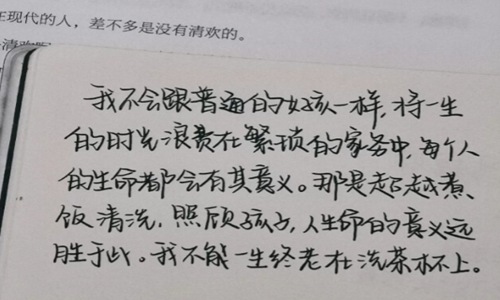 在现代的人，差不多是没有清欢的。
清欢
我不会跟普通的女孩一样，将一生
的时光浪费在繁琐的家务中，每个人
的生命都会有其意义。那是超越煮
饭清洗，照顾孩子，人生命的意义远
胜于此。我不能一生终老在洗茶杯上。